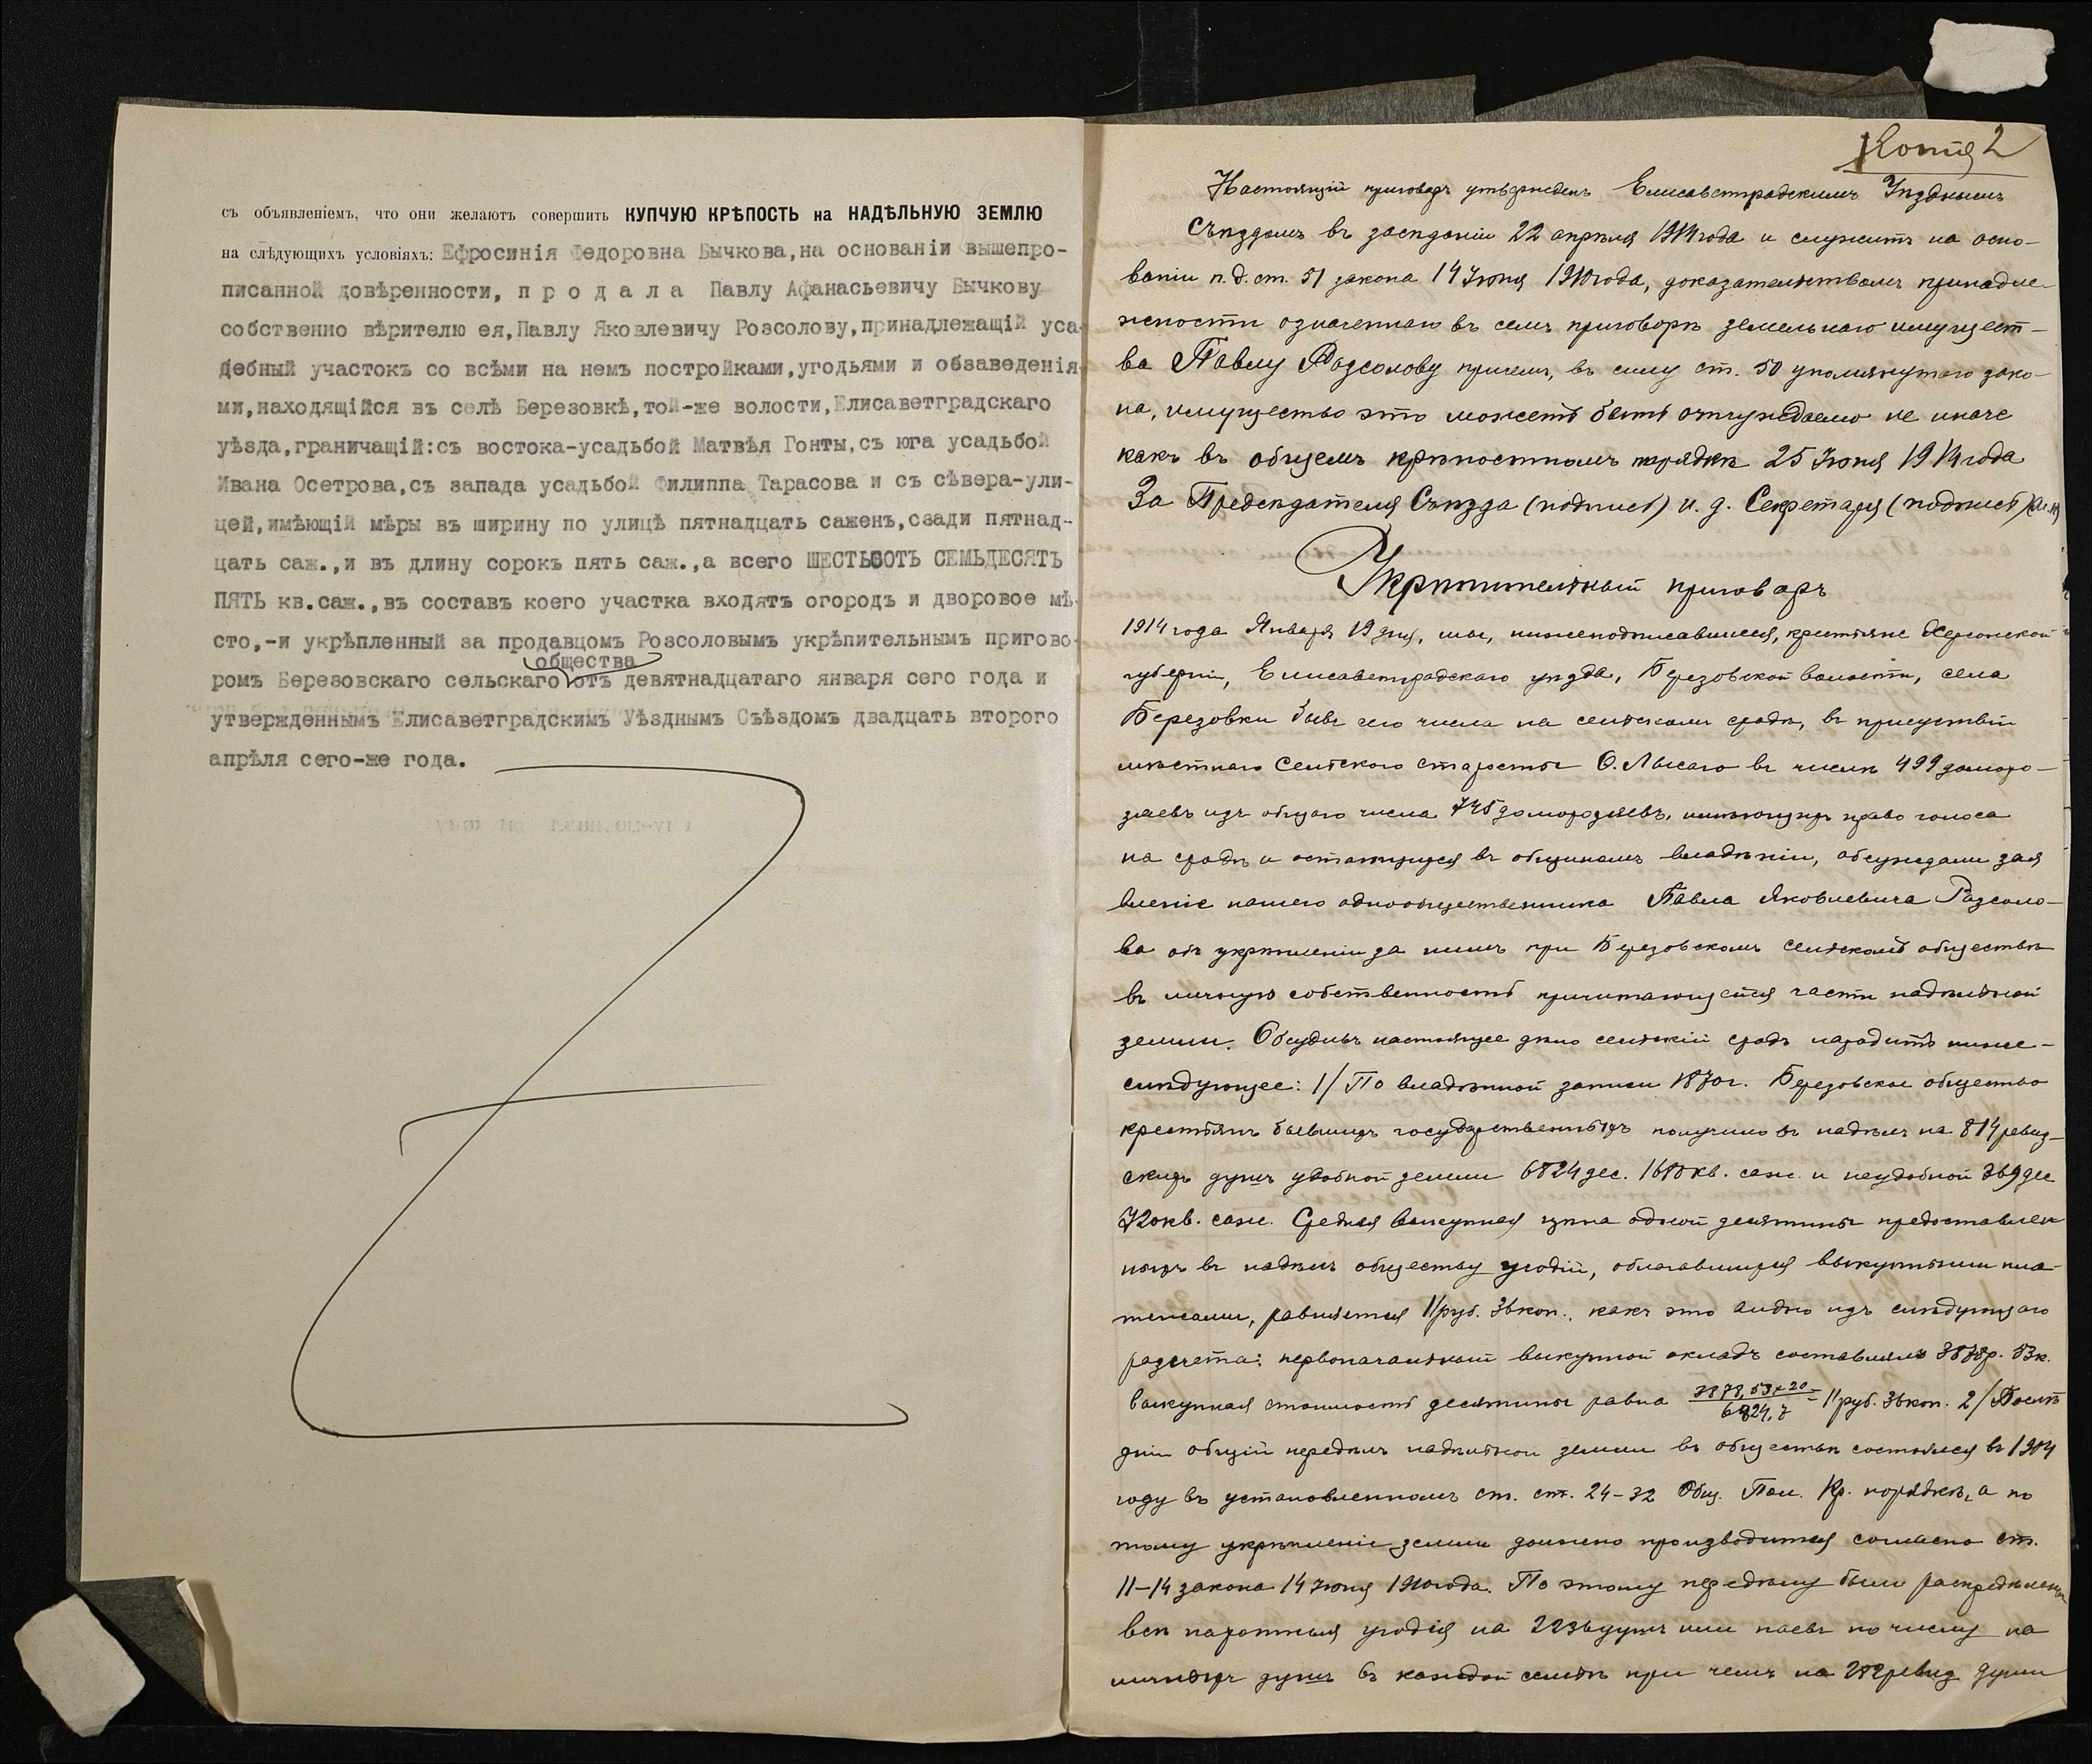 съ объявленіемъ, что они желаютъ совершить КУПЧУЮ КРѢПОСТЬ на НАДѢЛЬНУЮ ЗЕМЛЮ
на слѣдующихъ условіяхъ: Ефросинія Федоровна Бычкова,на основаніи вышепро-
писанной довѣренности, п р о д а л а Павлу Афанасьевичу Бычкову
собственно вѣрителю ея,Павлу Яковлевичу Розсолову,принадлежащій уса-
дебный участокъ со всѣми на немъ постройками,угодьями и обзаведенія-
ми,находящійся въ селѣ Березовкѣ,той-же волости,Елисаветградскаго
уѣзда,граничащій:съ востока-усадьбой Матвѣя Гонты,съ юга усадьбой
Ивана Осетрова,съ запада усадьбой Филиппа Тарасова и съ сѣвера-ули-
цей,имѣющій мѣры въ ширину по улицѣ пятнадцать сажень,сзади пятнад-
цать саж.,и въ длину сорокъ пять саж.,а всего ШЕСТЬСОТЪ СЕМЬДЕСЯТЪ
ПЯТЬ кв.саж.,въ составъ коего участка входятъ огородъ и дворовое мѣ-
сто,-и укрѣпленный за продавцомъ Розсоловымъ укрѣпительнымъ пригово-
общества
ромъ Березовскаго сельскаго отъ девятнадцатаго января сего года и
утвержденнымъ Елисаветградскимъ Уѣзднымъ Съѣздомъ двадцать второго
апрѣля сего-же года.
Копія 2
Настоящій приговоръ утвержденъ Елисаветградскимъ Уѣзднымъ
Съѣздомъ въ засѣданіи 22 апрѣля 1914 года и служитъ на осно-
ваніи п. д. ст. 51 закона 14 Іюня 1910 года, доказательствомъ принадле-
жности означеннаго въ семъ приговорѣ земельнаго имущест-
ва Павлу Розсолову причемъ, въ силу ст. 50 упомянутаго зако-
на, имущество это можетъ быть отчуждаемо не иначе
какъ въ общемъ крѣпостномъ порядкѣ 25 Іюня 1914 года
За Предсѣдателя Съѣзда (подпись) и. д. Секретаря (подпись)
Укрѣпительный приговоръ
1914 года Января 19 дня, мы, нижеподписавшіеся, крестьяне Херсонской
губерніи, Елисаветградскаго уѣзда, Березовской волости, села
Березовки бывъ сего числа на сельскомъ сходѣ, въ присутствіи
мѣстнаго Сельского старосты О. Лысаго въ числѣ 499 домохо-
зяевъ изъ общаго числа 745 домохозяевъ, имѣющихъ право голоса
на сходѣ и остающихся въ общинномъ владѣніи, обсуждали зая
вленіе нашего однообщественника Павла Яковлевича Розсоло-
ва объ укрѣпленіи за нимъ при Березовскомъ сельскомъ обществѣ
въ личную собственность причитающейся части надѣльной
земли. Обсудивъ настоящее дѣло сельскій сходъ находитъ ниже-
слѣдующее: 1/ По владѣнной записи 1870 г. Березовское общество
крестьянъ бывшихъ государственныхъ получило въ надѣлъ на 814 ревиз-
скихъ душъ удобной земли 6824 дес. 1680 кв. саж. и неудобной 369 дес
720 кв. саж. Средняя выкупная цѣна одной десятины предоставлен
ныхъ въ надѣлъ обществу угодій, облагавшихся выкупными пла-
тежами, равняется 11 руб. 36 коп., какъ это видно изъ слѣдующаго
разсчета: первоначальный выкупной окладъ составлялъ 3878 р. 53 к.
выкупная стоимость десятины равна 3878,53×20 / 6824,7 = 11 руб. 36 коп. 2/ Послѣ
дній общій передѣлъ надѣльной земли въ обществѣ состоялся въ 1904
году въ установленномъ ст. ст. 24-32 Общ. Пол. Кр. порядкѣ, а по
тому укрѣпленіе земли должно производиться согласно ст.
11-14 закона 14 Іюня 1910 года. По этому передѣлу были распредѣлены
всѣ пахотныя угодія на 2236 душъ или паевъ по числу на
личныхъ душъ въ каждой семьѣ при чемъ на ревиз души